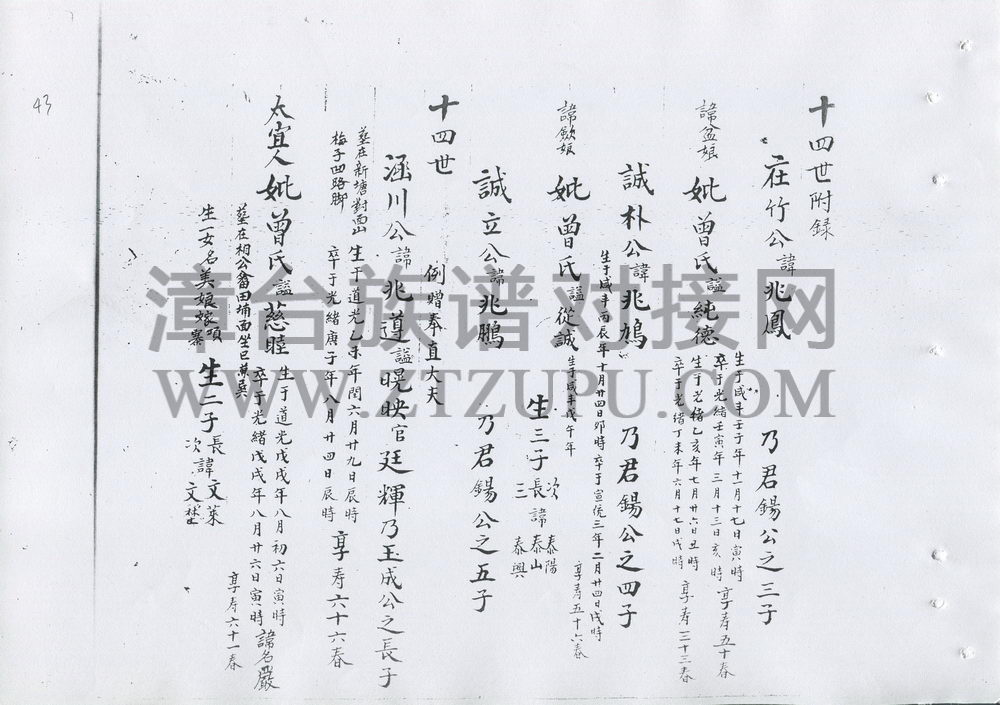 十四世附録
在竹公諱兆鳳 乃君錫公之三子
生于咸丰壬子年十一月十七日寅時
卒于光緒壬寅年三月十三日亥時 享寿五十春
諱盆娘 妣曾氏諡純德
生于光緒乙亥年七月廿六日丑時
卒于光緒丁未年六月十七日戌時 享寿三十三春
誠朴公諱兆鳩 乃君錫公之四子
生于咸丰丙辰年十月廿四日卯時 卒于宣統三年二月廿四日戌時 享寿五十六春
諱飲娘 妣曾氏諡從誠
生于咸丰戊午年
生三子 長 次 三 諱 泰山 泰陽 泰興
誠立公諱兆鵬 乃君錫公之五子
十四世
例贈奉直大夫
涵川公諱兆道諡晃映官廷輝乃玉成公之長子
墓在新塘對面山
梅子凹路脚
生于道光乙未年閏六月廿九日辰時
卒于光緒庚子年八月廿四日辰時 享寿六十六春
太宜人 妣曾氏諡慈睦
生于道光戊戌年八月初六日寅時
卒于光緒戊戌年八月廿六日寅時 諱名嚴
享寿六十一春
墓在相公畲田埔面坐巳兼巽
生一女名美娘嫁項寨
生二子 長諱文萊
次 文
43
漳台族谱对接网
WWW.ZTZUPU.COM